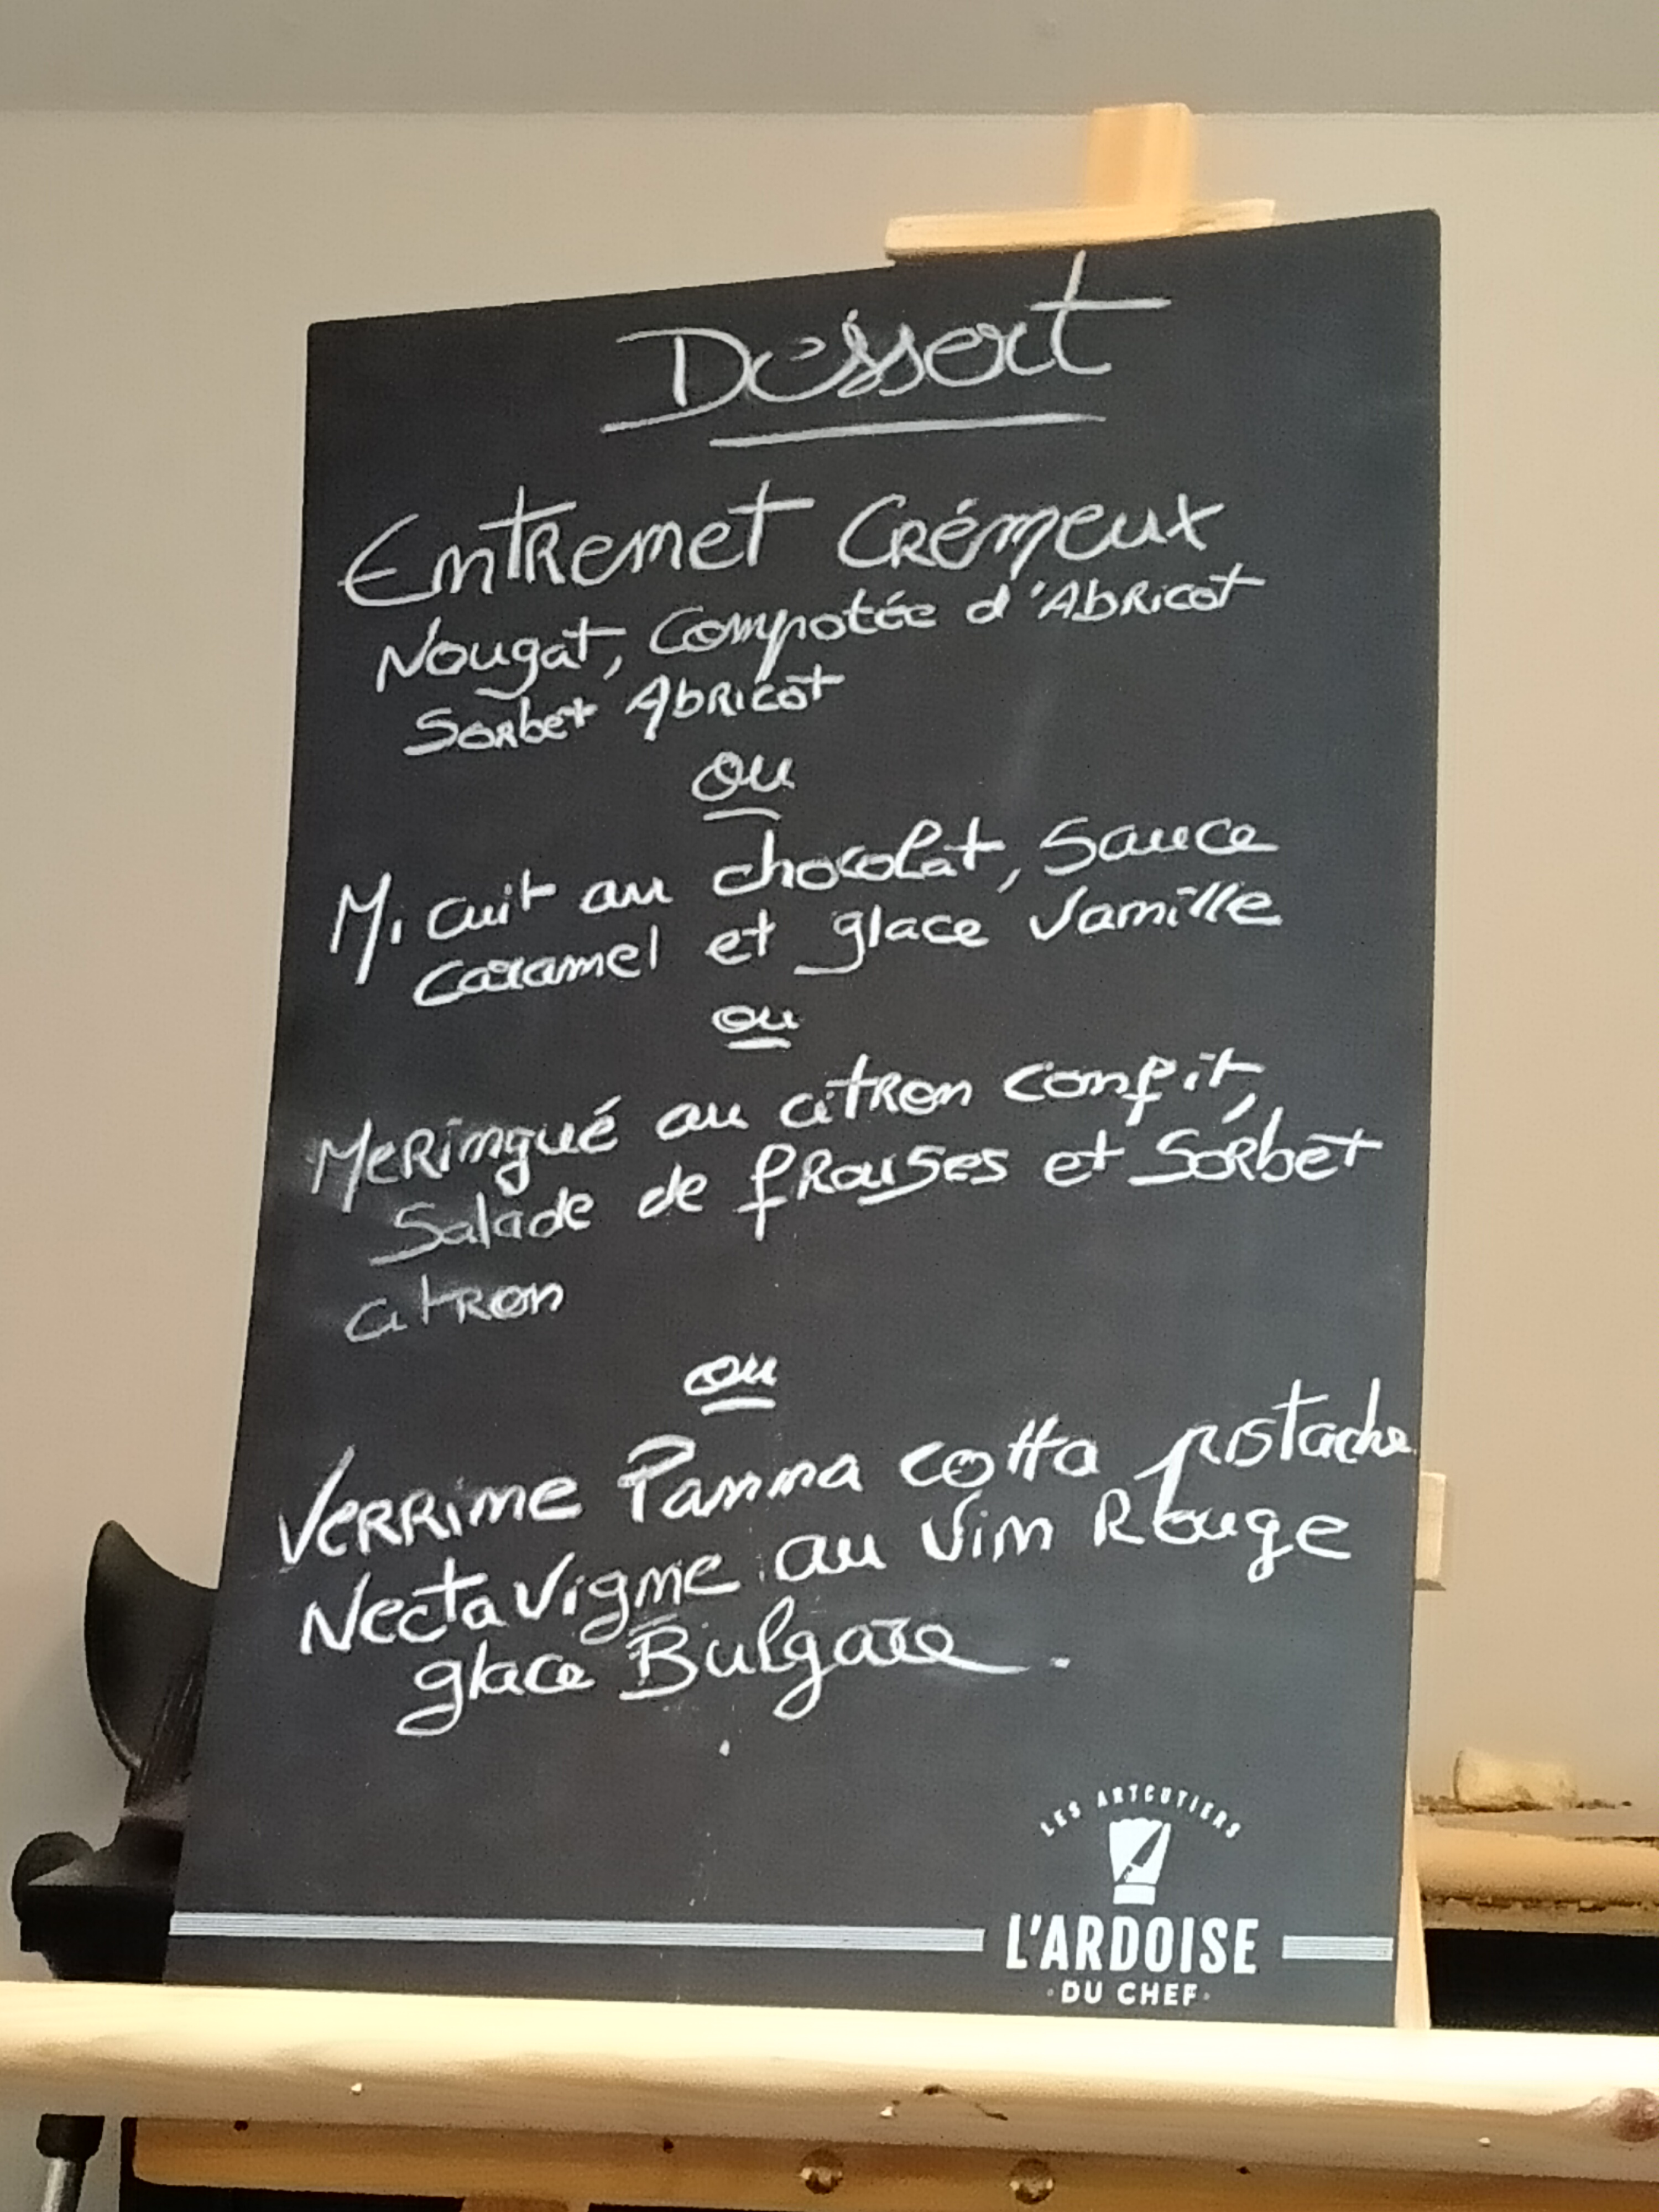 Dessert
Entremet Crémeux
Nougat, Compotée d'Abricot
Sorbet Abricot
ou
Mi cuit au chocolat, Sauce
Caramel et glace Vanille
ou
Meringué au citron confit,
Salade de fraises et Sorbet
citron
ou
Verrine Panna cotta pistache
Nectavigne au Vin Rouge
glace Bulgare.
LES ARTCUTIERS
L'ARDOISE
·DU CHEF·